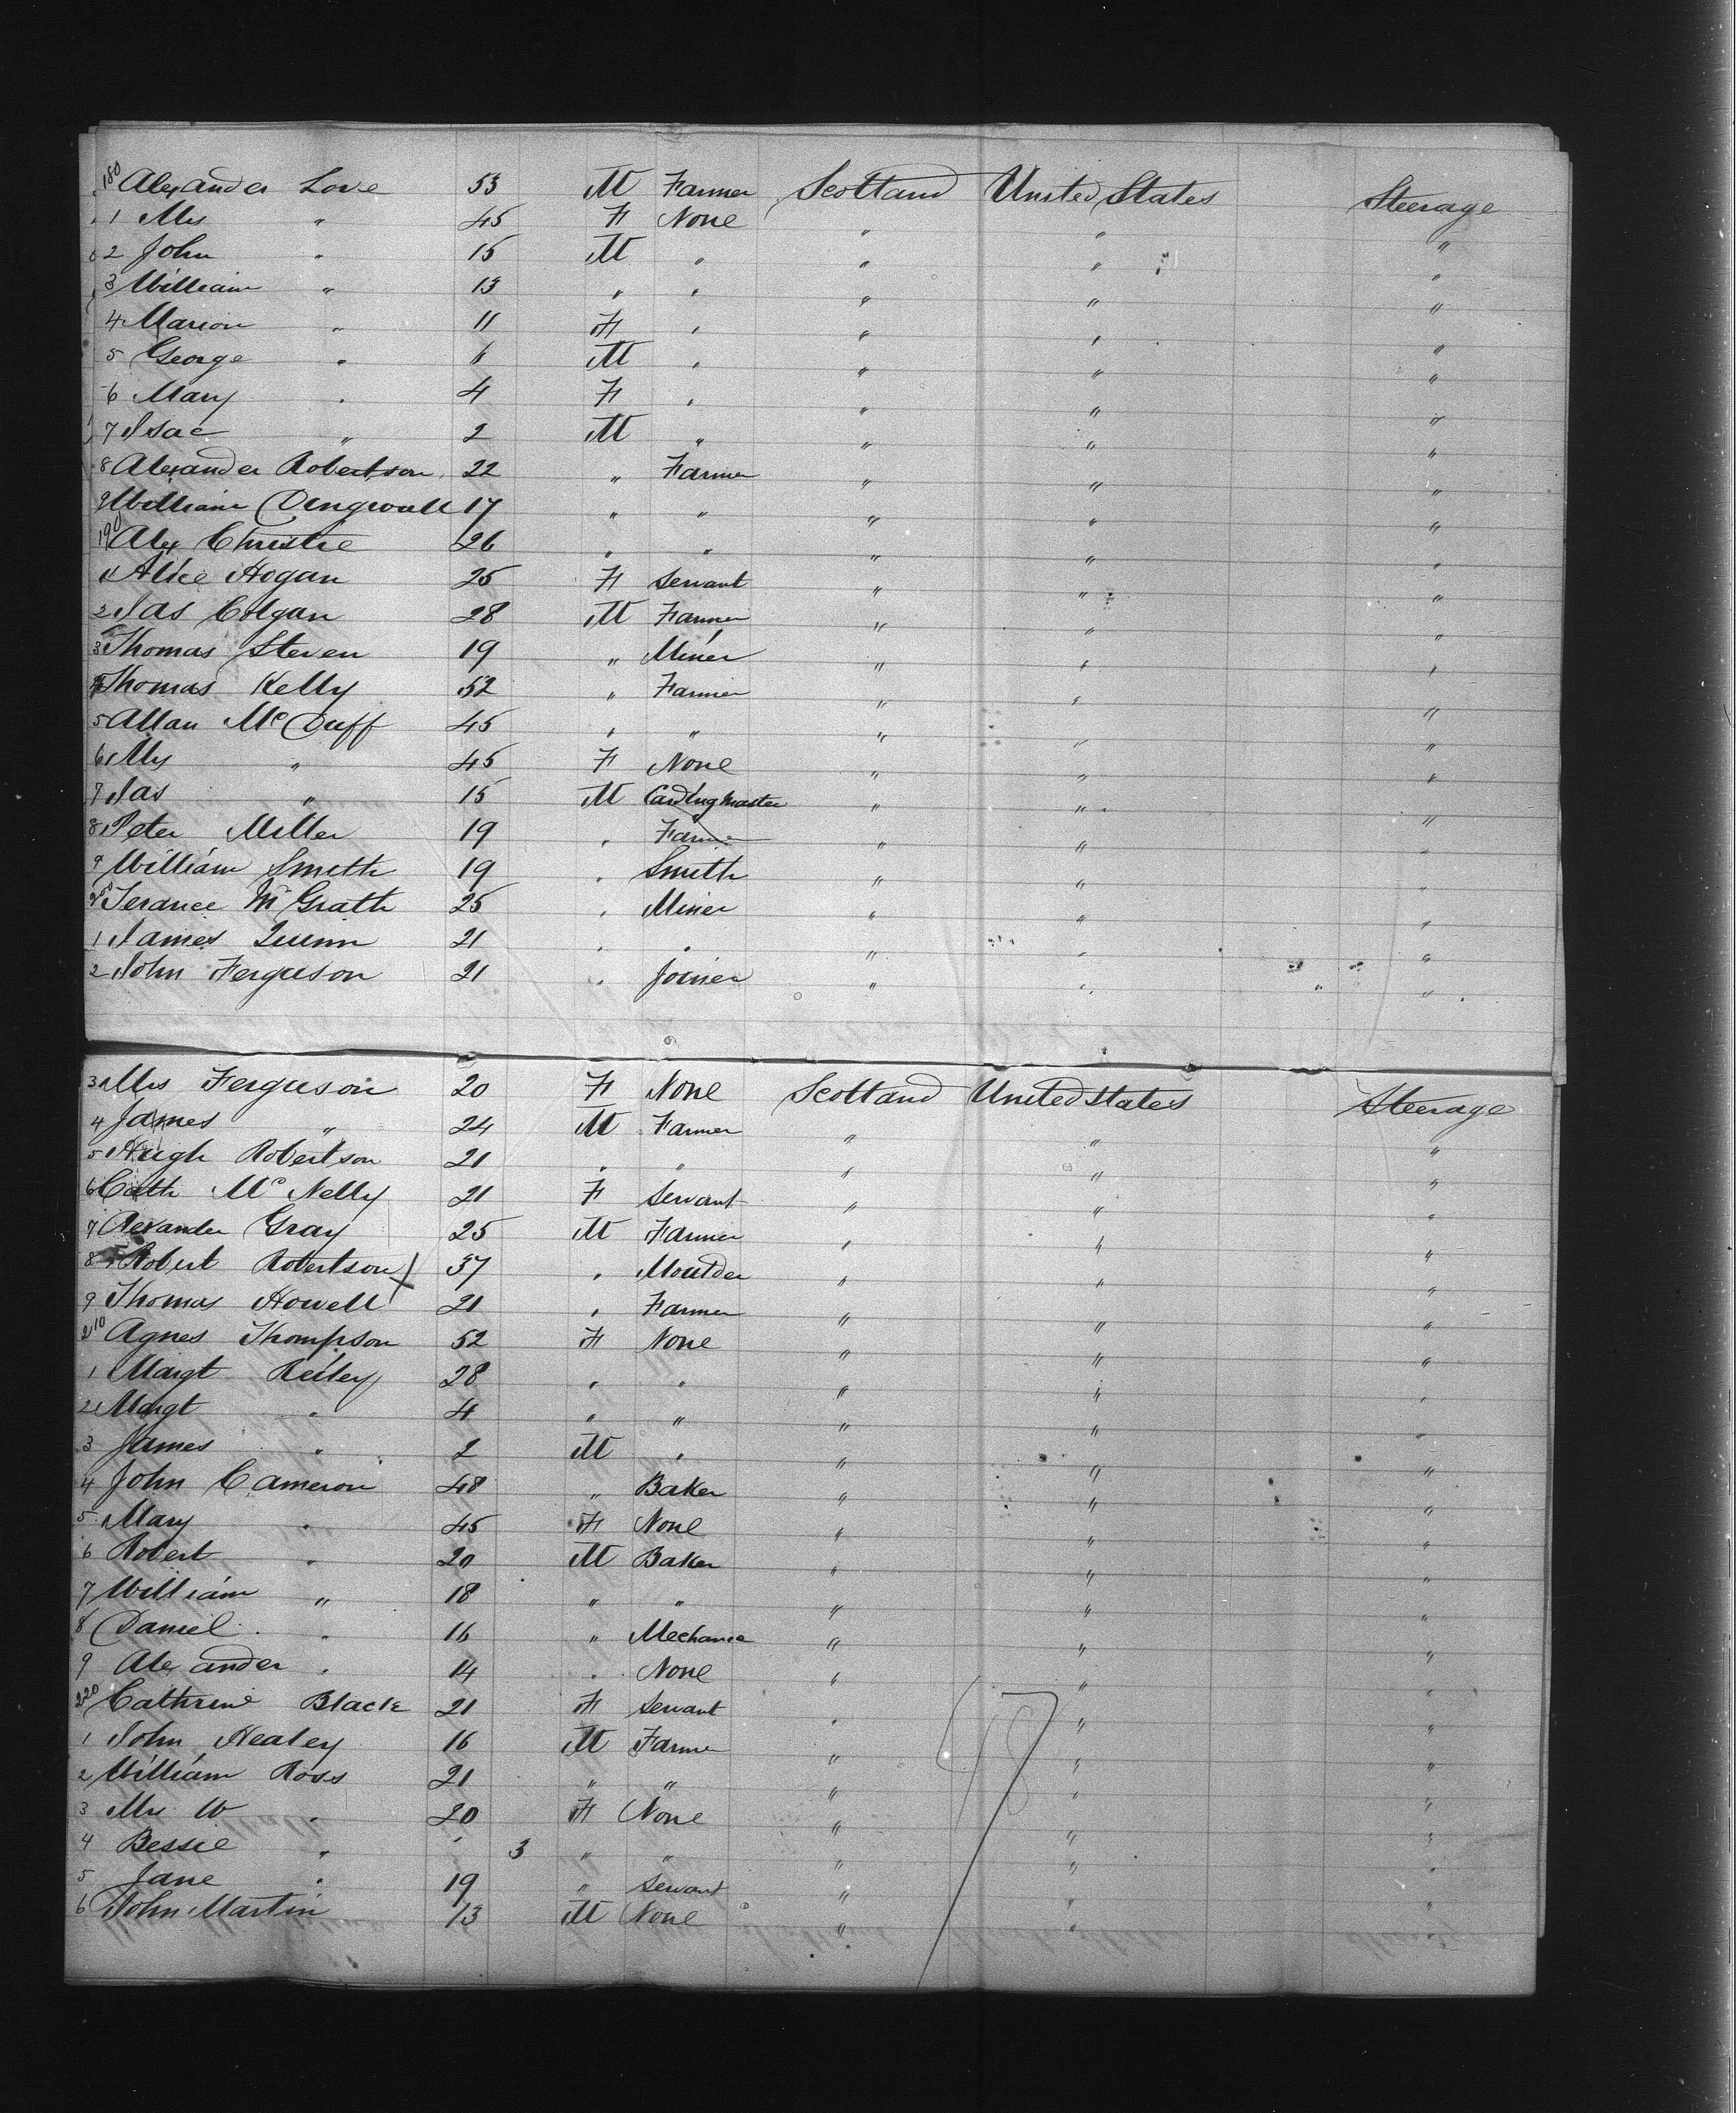 180 Alexander Love 53 M Farmer Scotland United States Steerage
1 Mrs " 45 F None " " "
2 John " 15 M " " " "
3 William " 13 " " " " "
4 Marion " 11 F " " " "
5 George " 6 M " " " "
6 Mary " 4 F " " " "
7 Isac " 2 M " " " "
8 Alexander Robertson 22 " Farmer " " "
9 William Dingwall 17 " " " " "
190 Alex Christie 26 " " " " "
1 Alice Hogan 25 F Servant " " "
2 Jas Colgan 28 M Farmer " " "
3 Thomas Steven 19 " Miner " " "
4 Thomas Kelly 52 " Farmer " " "
5 Allan McDuff 45 " " " " "
6 Mrs " 45 F None " " "
7 Jas " 15 M Carding Master " " "
8 Peter Miller 19 " Farmer " " "
9 William Smith 19 " Smith " " "
200 Terance McGrath 25 " Miner " " "
1 James Quinn 21 " " " " "
2 John Ferguson 21 " Joiner " " "
3 Mrs Ferguson 20 F None Scotland United States Steerage
4 James " 24 M Farmer " " "
5 Hugh Robertson 21 " " " " "
6 Cath McNelly 21 F Servant " " "
7 Alexander Gray 25 M Farmer " " "
8 Robert Robertson X 37 " Moulder " " "
9 Thomas Howell 21 " Farmer " " "
210 Agnes Thompson 52 F None " " "
1 Margt Reiley 28 " " " " "
2 Margt " 4 " " " " "
3 James " 2 M " " " "
4 John Cameron 48 " Baker " " "
5 Mary " 45 F None " " "
6 Robert " 20 M Baker " " "
7 William " 18 " " " " "
8 Daniel " 16 " Mechanic " " "
9 Alexander " 14 " None " " "
220 Cathrine Black 21 F Servant " " "
1 John Healey 16 M Farmer " " "
2 William Ross 21 " " " " "
3 Mrs W " 20 F None " " "
4 Bessie " 3 " " " " "
5 Jane " 19 " Servant " " "
6 John Martin 13 M None " " "
48